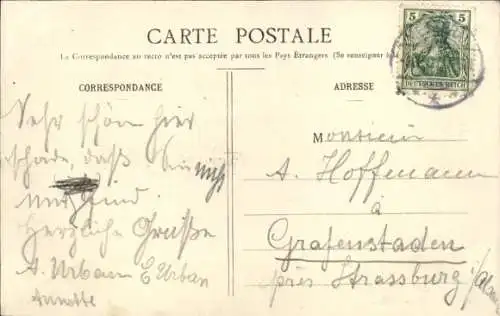 CARTE POSTALE
La Correspondance au recto n'est pas acceptée par tous les Pays Étrangers (Se renseigner à la
CORRESPONDANCE
ADRESSE
5 5
DEUTSCHES REICH
Sehr schön hier
schade, daß Sie nicht
mit sind
Herzliche Grüße
A. Urban E Urban
Annette
Monsieur
A. Hoffmann
à
Grafenstaden
près Strassburg i/